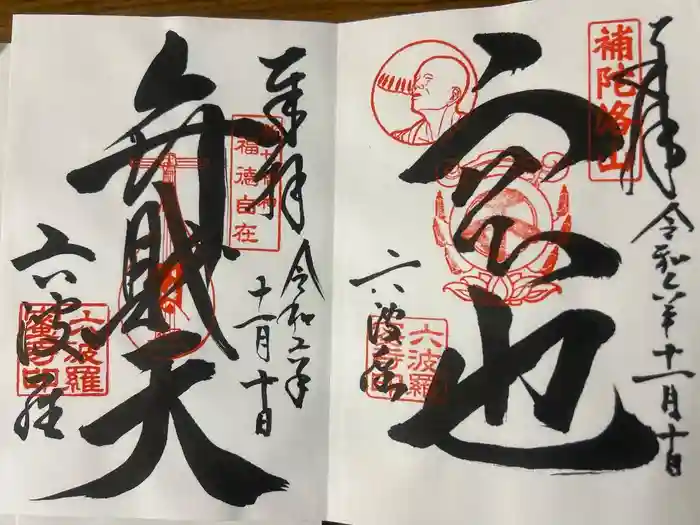 奉拝
令和六年十一月十日
補陀洛山
空也
六波羅
六波羅
奉拝
令和六年
十一月十日
福徳自在
弁財天
六波羅
六波羅